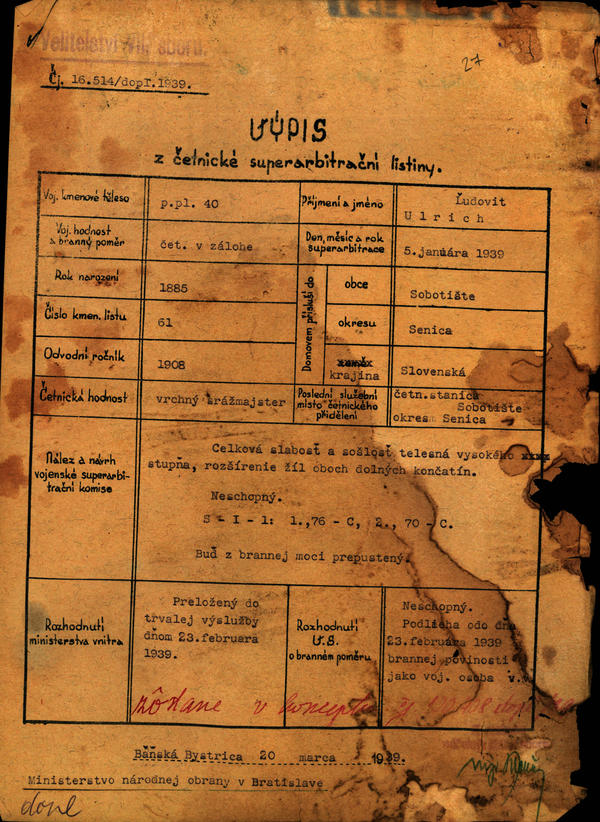 Velitelství VII. sboru.
27
Čj. 16.514/dopľ.1939.
VÝPIS
z četnické superarbitrační listiny.
Voj. kmenové těleso
p.pl. 40
Příjmení a jméno
Ľudovit
Ulrich
Voj. hodnost
a branný poměr
čet. v zálohe
Den, měsíc a rok
superarbitrace
5.januára 1939
Rok narození
1885
Domovem přísluší do
obce
Sobotište
Číslo kmen. listu
61
okresu
Senica
Odvodní ročník
1908
krajina
Slovenská
Četnická hodnost
vrchný strážmajster
Poslední služební
místo četnického
přidělení
četn.stanica
Sobotište
okres Senica
Nález a návrh
vojenské superarbi-
trační komise
Celková slabosť a sošlosť telesná vysokého xxxx
stupňa, rozšírenie žíl oboch dolných končatín.
Neschopný.
S - I - 1: 1.,76 - C, 2., 70 - C.
Buď z brannej moci prepustený.
Rozhodnutí
ministerstva vnitra
Preložený do
trvalej výslužby
dňom 23.februara
1939.
Rozhodnutí
V.S.
o branném poměru
Neschopný.
Podlieha odo dňa
23.februára 1939
brannej povinosti
jako voj. osoba v.v.
v koncepte
Báňská Bystrica 20 marca 1939.
Ministerstvo národnej obrany v Bratislave